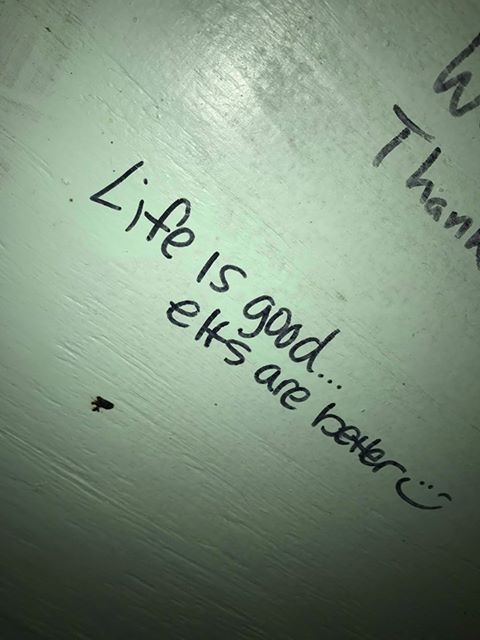 W
Thank
Life is good...
elfs are better :)